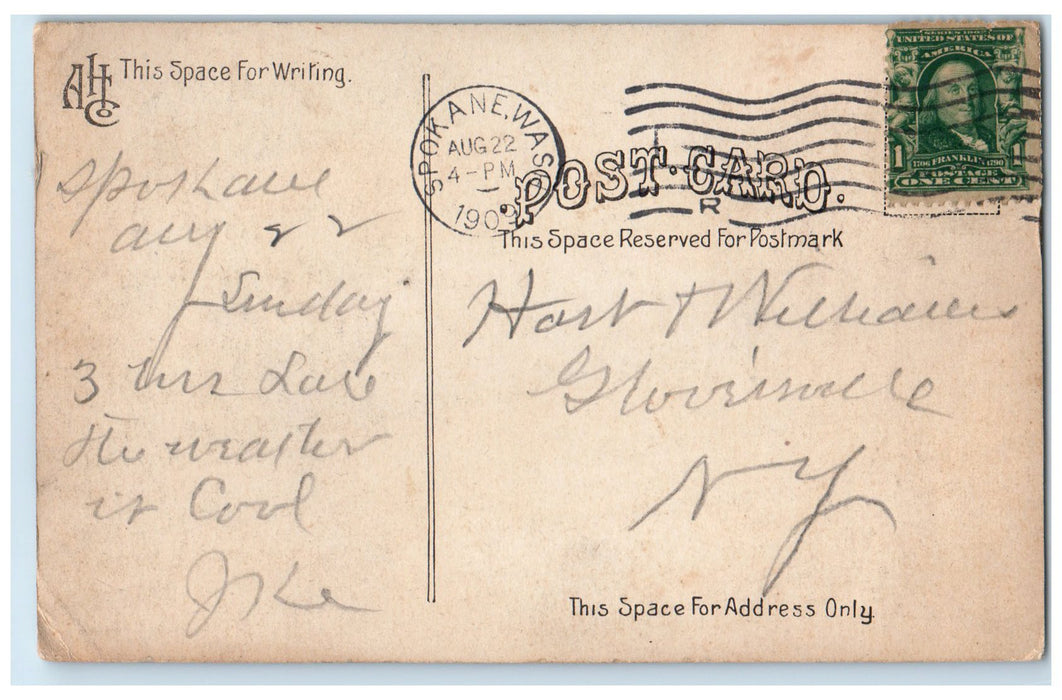 AHC Co
This Space For Writing.
Spokane
Aug 22
Sunday
3 hrs Late
the weather
is Cool
Ike
SPOKANE, WASH.
AUG 22
4-PM
1909
R
SERIES 1902
UNITED STATES OF
AMERICA
1 1706 FRANKLIN 1790 1
POSTAGE
ONE CENT
POST-CARD.
This Space Reserved For Postmark
Hart & Williams
Gloversville
NY
This Space For Address Only.